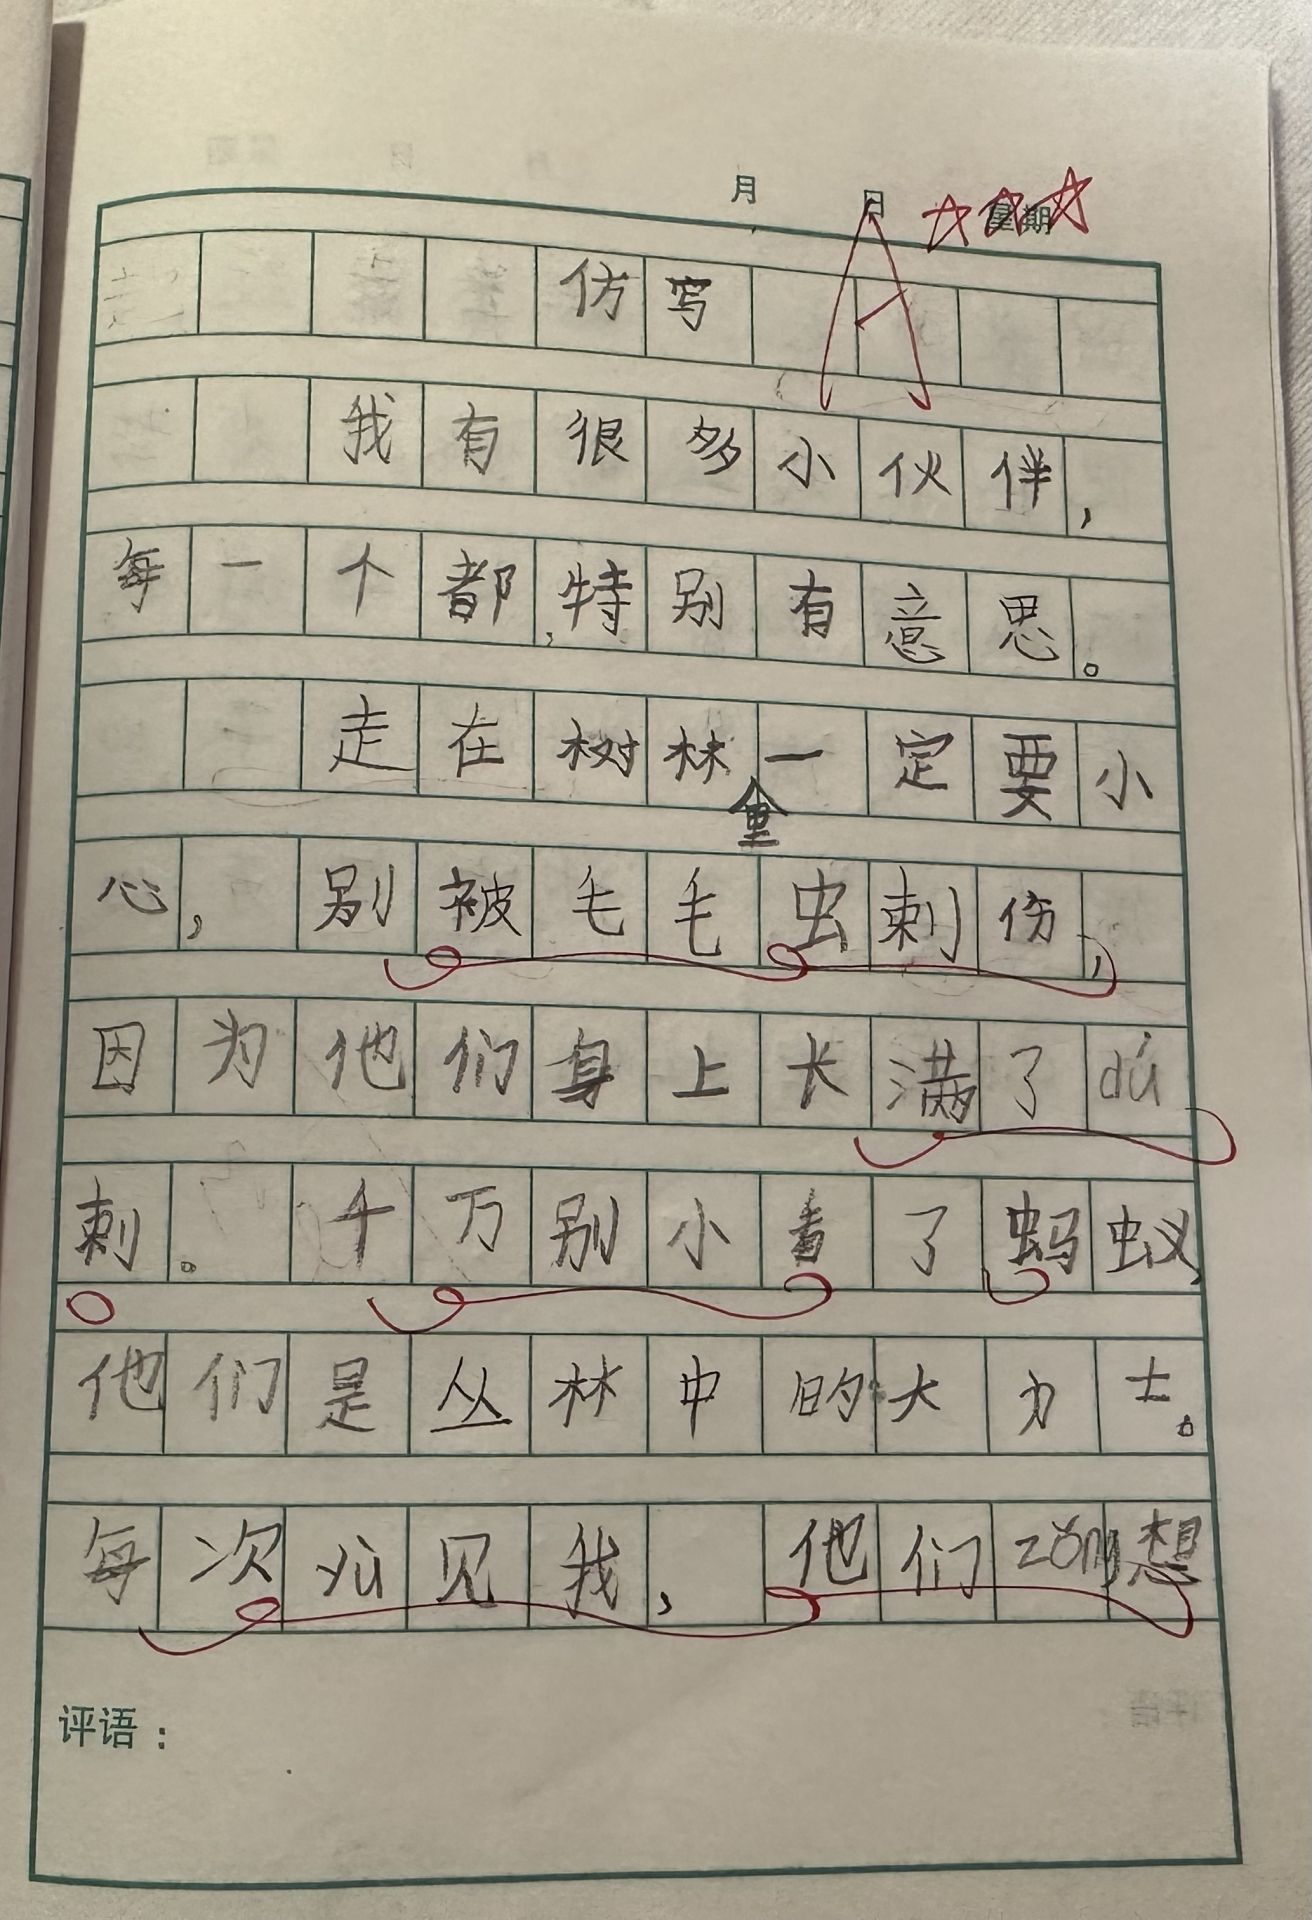 月 日 星期
A
仿写
我有很多小伙伴，
每一个都特别有意思。
走在树林里一定要小
心，别被毛毛虫刺伤，
因为他们身上长满了dú
刺。千万别小看了蚂蚁，
他们是丛林中的大力士。
每次yù见我，他们zǒng想
评语：